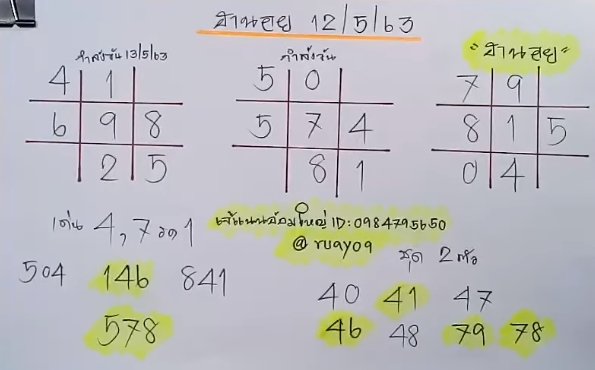 ฮานอย 12/5/63
กำลังวัน 13/5/63
กำลังวัน
"ฮานอย"
4 1
6 9 8
2 5
5 0
5 7 4
8 1
7 9
8 1 5
0 4
เด่น 4,7 รอง 1
504 146 841
578
เจ๊แนนอ้อมใหญ่ ID: 0984795650
@ruay09
ชุด 2 ตัว
40 41 47
46 48 79 78